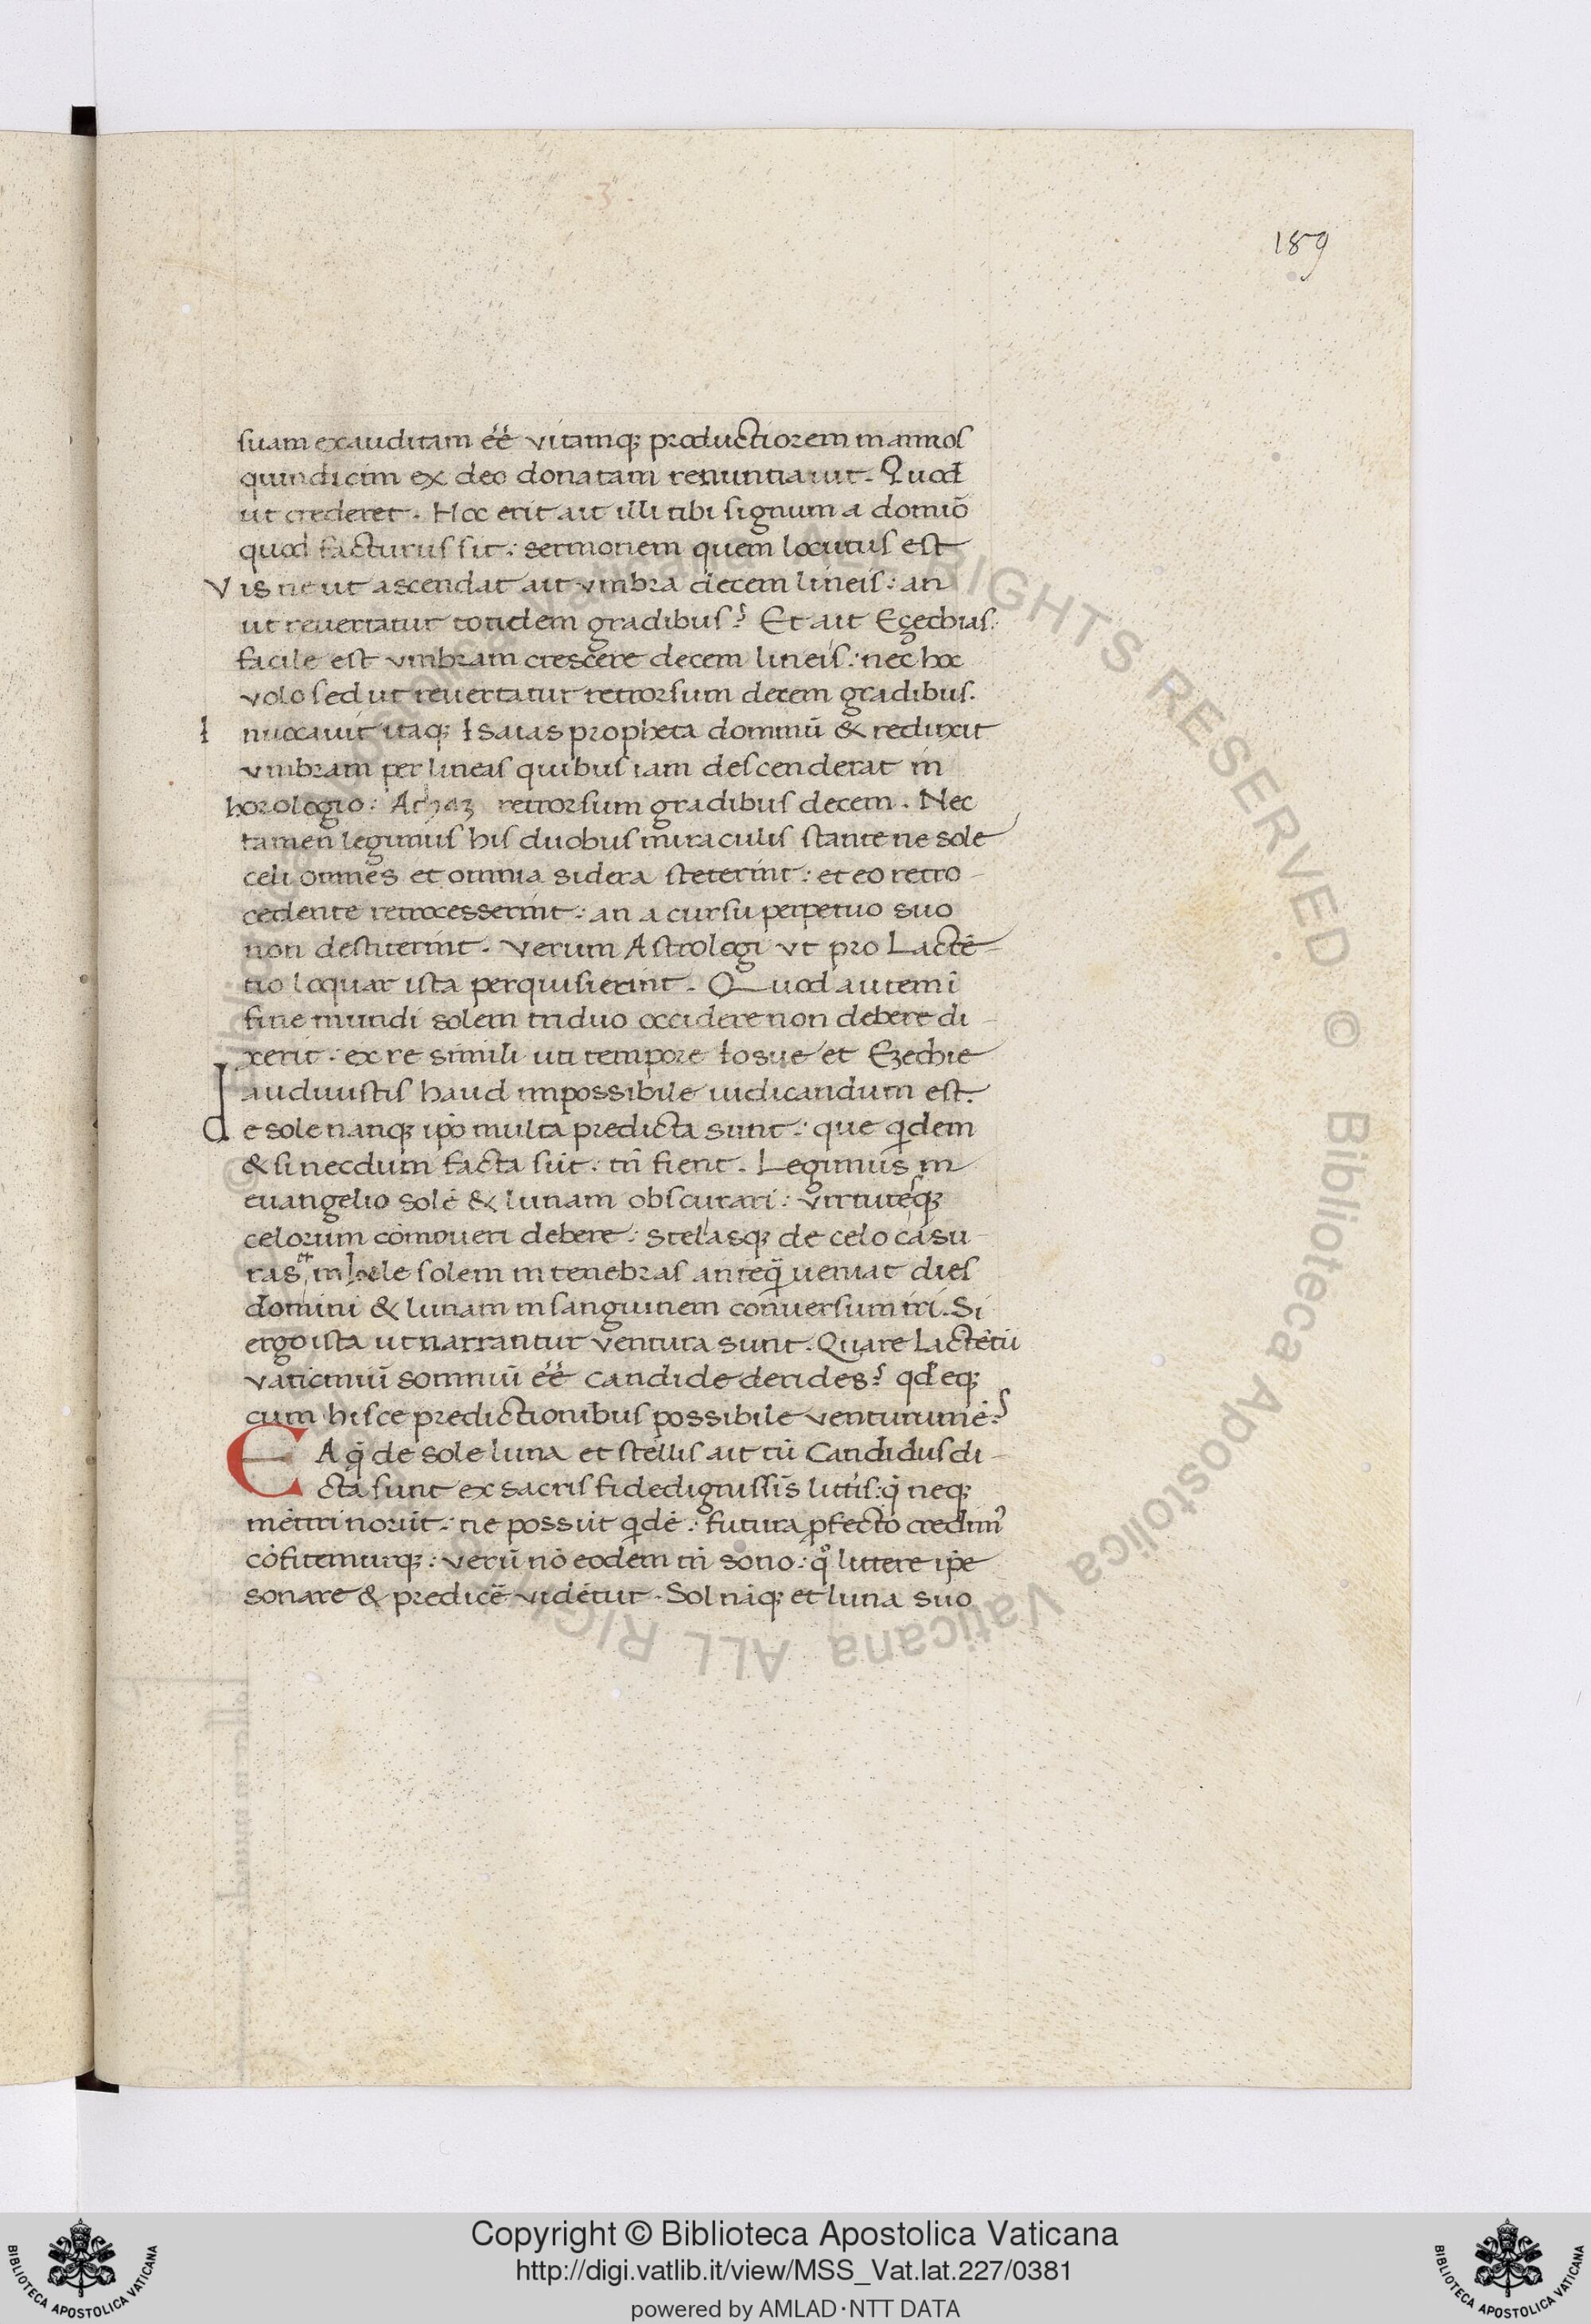 .3.
189
suam exauditam éé vitamq; productiorem in annos
quindicim ex deo donatam renuntiauit. Quod
ut crederet. Hoc erit ait illi tibi signum a domiō
quod facturus sit: sermonem quem locutus est
Vis ne ut ascendat ait vmbra decem lineis: an
ut reuertatur totidem gradibus? Et ait Eçechias:
facile est vmbram crescere decem lineis: nec hoc
volo sed ut reuertatur retrorsum decem gradibus.
Inuocauit itaq; Isaias propheta dominū & reduxit
vmbram per lineas quibus iam descenderat in
horologio: Achaz retrorsum gradibus decem. Nec
tamen legimus his duobus miraculis stante ne sole
celi omnes et omnia sidera steterint: et eo retro-
cedente retrocesserint: an a cursu perpetuo suo
non destiterint. Verum Astrologi vt pro Lactē-
tio loquar ista perquisierint. Quod autem ī
fine mundi solem triduo occidere non debere di-
xerit: ex re simili uti tempore Iosue et Ezechie
audiuistis haud impossibile iudicandum est.
de sole nanq; ip̄o multa predicta sunt: que qidem
& si necdum facta sūt: tn̄ fient. Legimus in
euangelio solē & lunam obscurari: virtutesq;
celorum cōmoueri debere: stellasq; de celo casu-
ras, et in Joele solem in tenebras anteq̄ ueniat dies
domini & lunam in sanguinem conuersum iri. Si
ergo ista ut narrantur ventura sunt. Quare Lactētiū
vaticiniū somniū éé candide derides? qd eq;
cum hisce predictionibus possibile venturum ē?
EA q̄ de sole luna et stellis ait tū Candidus di-
cta sunt ex sacris fide dignissīs litt̄is: q̄ neq;
mētiri norūt: ne possūt qidē: futura ꝓfecto credim⁹
cōfitemurq;: verū nō eodem tn̄ sono: qͦ littere ip̄e
sonare & predicē vidētur. Sol nāq; et luna suo
© Biblioteca Apostolica Vaticana ALL RIGHTS RESERVED © Biblioteca Apostolica Vaticana ALL RIGHTS
Copyright © Biblioteca Apostolica Vaticana
http://digi.vatlib.it/view/MSS_Vat.lat.227/0381
powered by AMLAD·NTT DATA
BIBLIOTECA APOSTOLICA VATICANA
BIBLIOTECA APOSTOLICA VATICANA